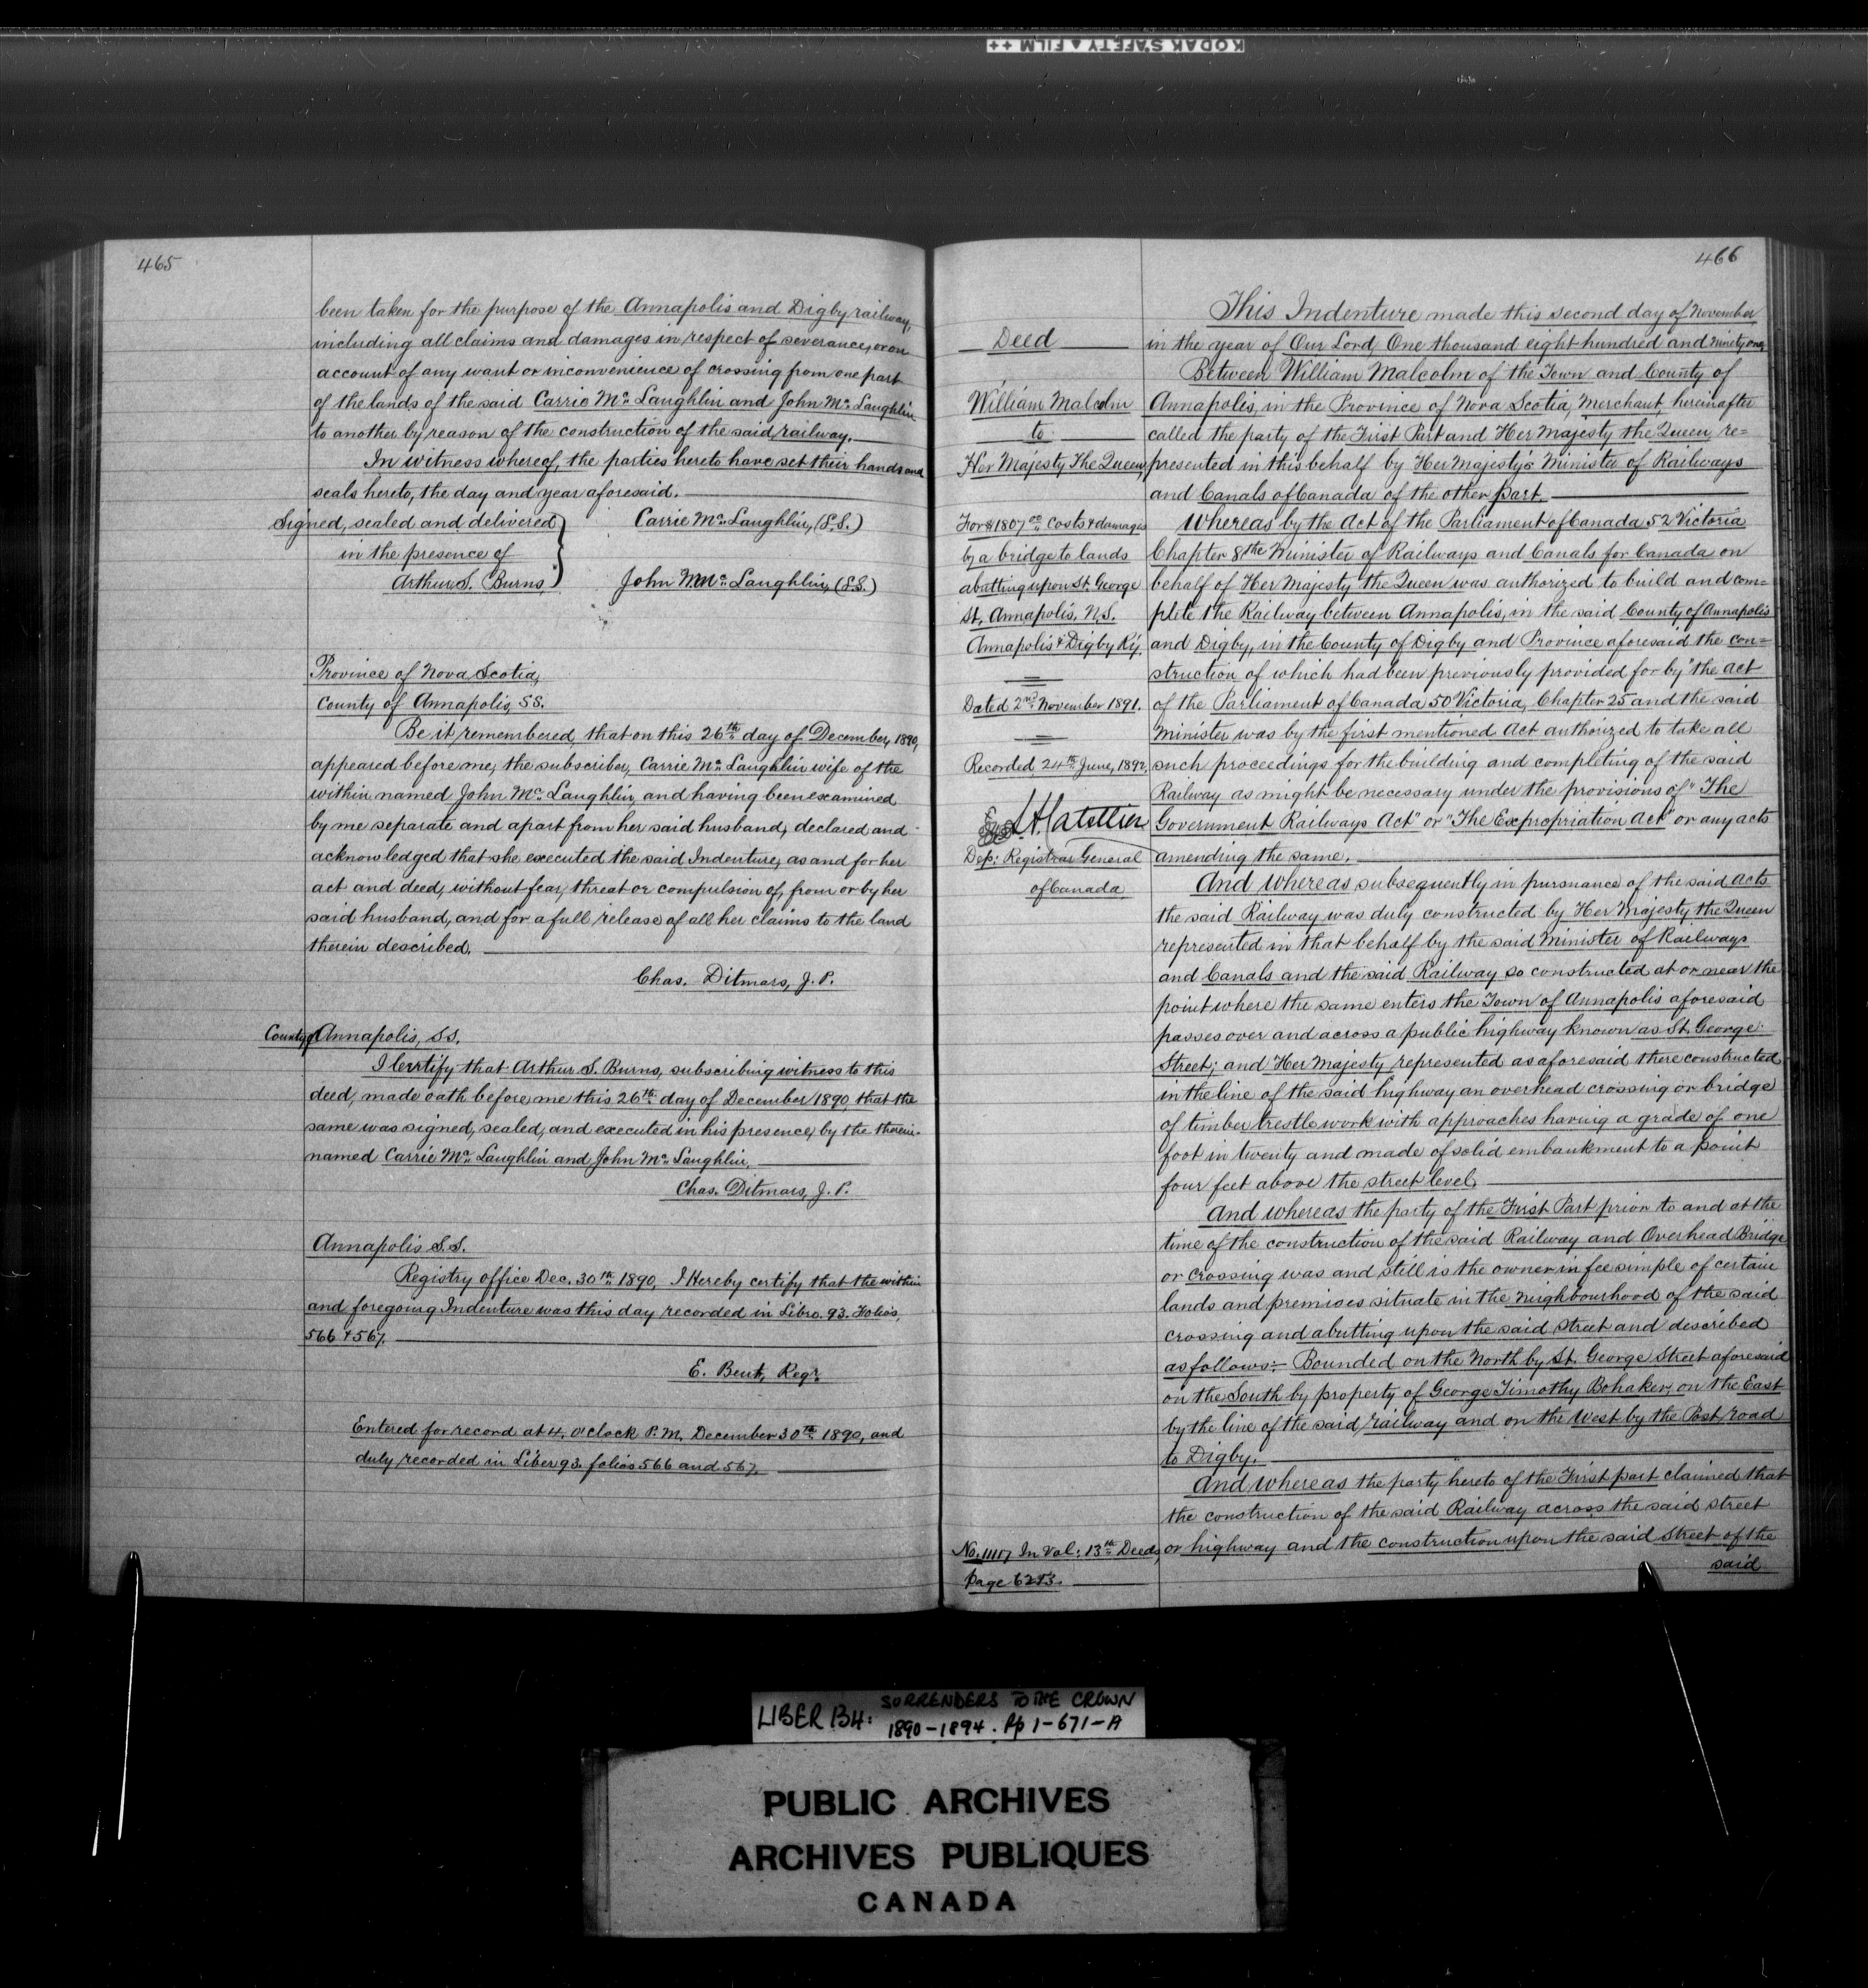 KODAK SAFETY ▲ FILM ++
465
been taken for the purpose of the Annapolis and Digby railway,
including all claims and damages in respect of severance, or on
account of any want or inconvenience of crossing from one part
of the lands of the said Carrie Mc. Laughlin and John Mc. Laughlin
to another by reason of the construction of the said railway.
In witness whereof, the parties hereto have set their hands and
seals hereto, the day and year aforesaid.
Signed, sealed and delivered Carrie Mc. Laughlin, (L.S.)
in the presence of
Arthur S. Burns, John Mc. Laughlin, (L.S.)
Province of Nova Scotia,
County of Annapolis, SS.
Be it remembered, that on this 26th day of December, 1890,
appeared before me, the subscriber, Carrie Mc. Laughlin wife of the
within named John Mc. Laughlin, and having been examined
by me separate and apart from her said husband, declared and
acknowledged that she executed the said Indenture, as and for her
act and deed, without fear, threat or compulsion of, from or by her
said husband, and for a full release of all her claims to the land
therein described.
Chas. Ditmars, J. P.
County of Annapolis, SS.
I Certify that Arthur S. Burns, subscribing witness to this
deed, made oath before me this 26th day of December 1890, that the
same was signed, sealed, and executed in his presence, by the therein-
named Carrie Mc. Laughlin and John Mc. Laughlin.
Chas. Ditmars, J. P.
Annapolis S.S.
Registry office Dec. 30th 1890, I Hereby certify that the within
and foregoing Indenture was this day recorded in Libro. 93. Folios,
566 & 567.
E. Bent, Regr.
Entered for record at 4, o'clock P.M. December 30th 1890, and
duly recorded in Liber 93. folios 566 and 567.
466
Deed
William Malcolm
to
Her Majesty The Queen,
For $1807 00 Costs & damages
by a bridge to lands
abutting upon St. George
St. Annapolis, N.S.
Annapolis & Digby Ry.
Dated 2nd November 1891.
Recorded 24th June, 1892,
Dep: Registrar General
of Canada
No. 11117 In Vol: 13th Deeds,
Page
This Indenture made this second day of November
in the year of Our Lord, One thousand eight hundred and ninety one,
Between William Malcolm of the Town and County of
Annapolis, in the Province of Nova Scotia, Merchant, hereinafter
called the party of the First Part and Her Majesty the Queen, re=
presented in this behalf by Her Majesty's Minister of Railways
and Canals of Canada of the other part.
Whereas by the Act of the Parliament of Canada 52 Victoria
Chapter 8 the Minister of Railways and Canals for Canada on
behalf of Her Majesty the Queen was authorized to build and com=
plete the Railway between Annapolis, in the said County of Annapolis
and Digby, in the County of Digby and Province aforesaid the con=
struction of which had been previously provided for by "the Act
of the Parliament of Canada 50 Victoria, Chapter 25 and the said
Minister was by the first mentioned Act authorized to take all
such proceedings for the building and completing of the said
Railway as might be necessary under the provisions of "The
Government Railways Act" or "The Expropriation Act" or any acts
amending the same.
And whereas subsequently in pursuance of the said Acts
the said Railway was duly constructed by Her Majesty the Queen
represented in that behalf by the said Minister of Railways
and Canals and the said Railway so constructed at or near the
point where the same enters the Town of Annapolis aforesaid
passes over and across a public highway known as St. George
Street; and Her Majesty represented as aforesaid there constructed
in the line of the said highway an overhead crossing or bridge
of timber trestle work with approaches having a grade of one
foot in twenty and made of solid embankment to a point
four feet above the street level.
And whereas the party of the First Part prior to and at the
time of the construction of the said Railway and Overhead Bridge
or crossing was and still is the owner in fee simple of certain
lands and premises situate in the neighbourhood of the said
crossing and abutting upon the said street and described
as follows:- Bounded on the North by St. George Street aforesaid
on the South by property of George Timothy Bohaker, on the East
by the line of the said railway and on the West by the Post road
to Digby.
And whereas the party hereto of the First part claimed that
the construction of the said Railway across the said street
or highway and the construction upon the said Street of the
said
LIBER 134: SURRENDERS TO THE CROWN
1890-1894. Pp 1-671-A
PUBLIC ARCHIVES
ARCHIVES PUBLIQUES
CANADA